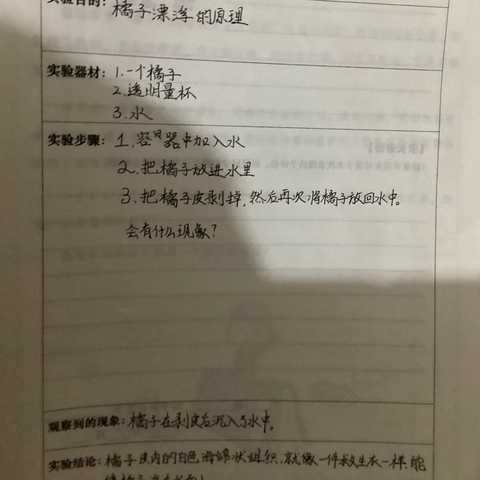 实验目的：橘子漂浮的原理
实验器材：1.一个橘子
2.透明量杯
3.水
实验步骤：1.容器中加入水
2.把橘子放进水里
3.把橘子皮剥掉，然后再次将橘子放回水中。
会有什么现象？
观察到的现象：橘子在剥皮后沉入了水中。
实验结论：橘子皮内的白色海绵状组织，就像一件救生衣一样，能